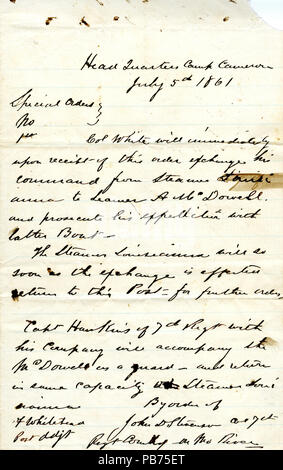 Head Quarters Camp Cameron
July 5th 1861
Special Orders }
No }
Col White will immediately
upon receipt of this order exchange his
command from Steamer Louisi
anna to Steamer A McDowell.
and prosecute his expedition with
latter Boat—
The Steamer Louisianna will as
soon as the exchange is effected
return to this Post for further orders
Capt Hawkins of 7th Regt with
his Company will accompany the
McDowell as a guard— and return
in same capacity Steamer Loui
sianna By order of
Whitehead John D
Post Adjt on Mo River
alamy
Image ID: PB75ET
www.alamy.com